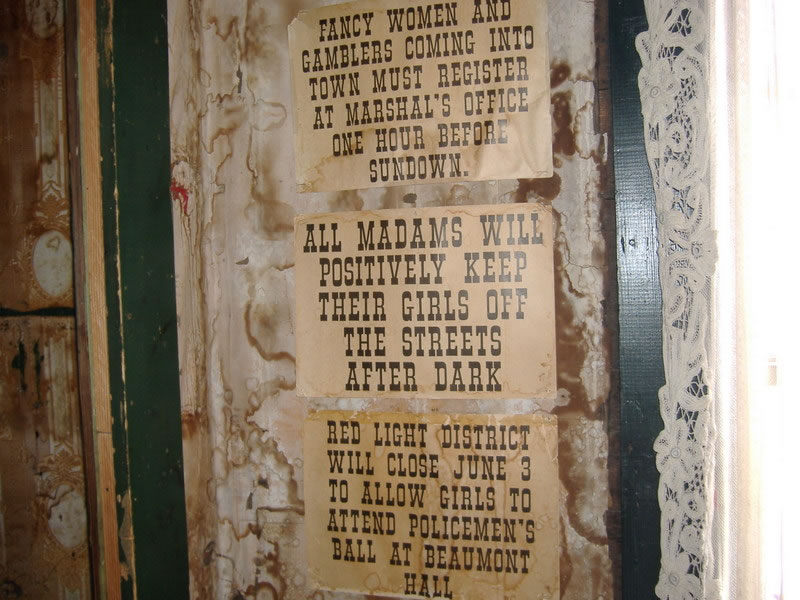 FANCY WOMEN AND
GAMBLERS COMING INTO
TOWN MUST REGISTER
AT MARSHAL'S OFFICE
ONE HOUR BEFORE
SUNDOWN.
ALL MADAMS WILL
POSITIVELY KEEP
THEIR GIRLS OFF
THE STREETS
AFTER DARK
RED LIGHT DISTRICT
WILL CLOSE JUNE 3
TO ALLOW GIRLS TO
ATTEND POLICEMEN'S
BALL AT BEAUMONT
HALL